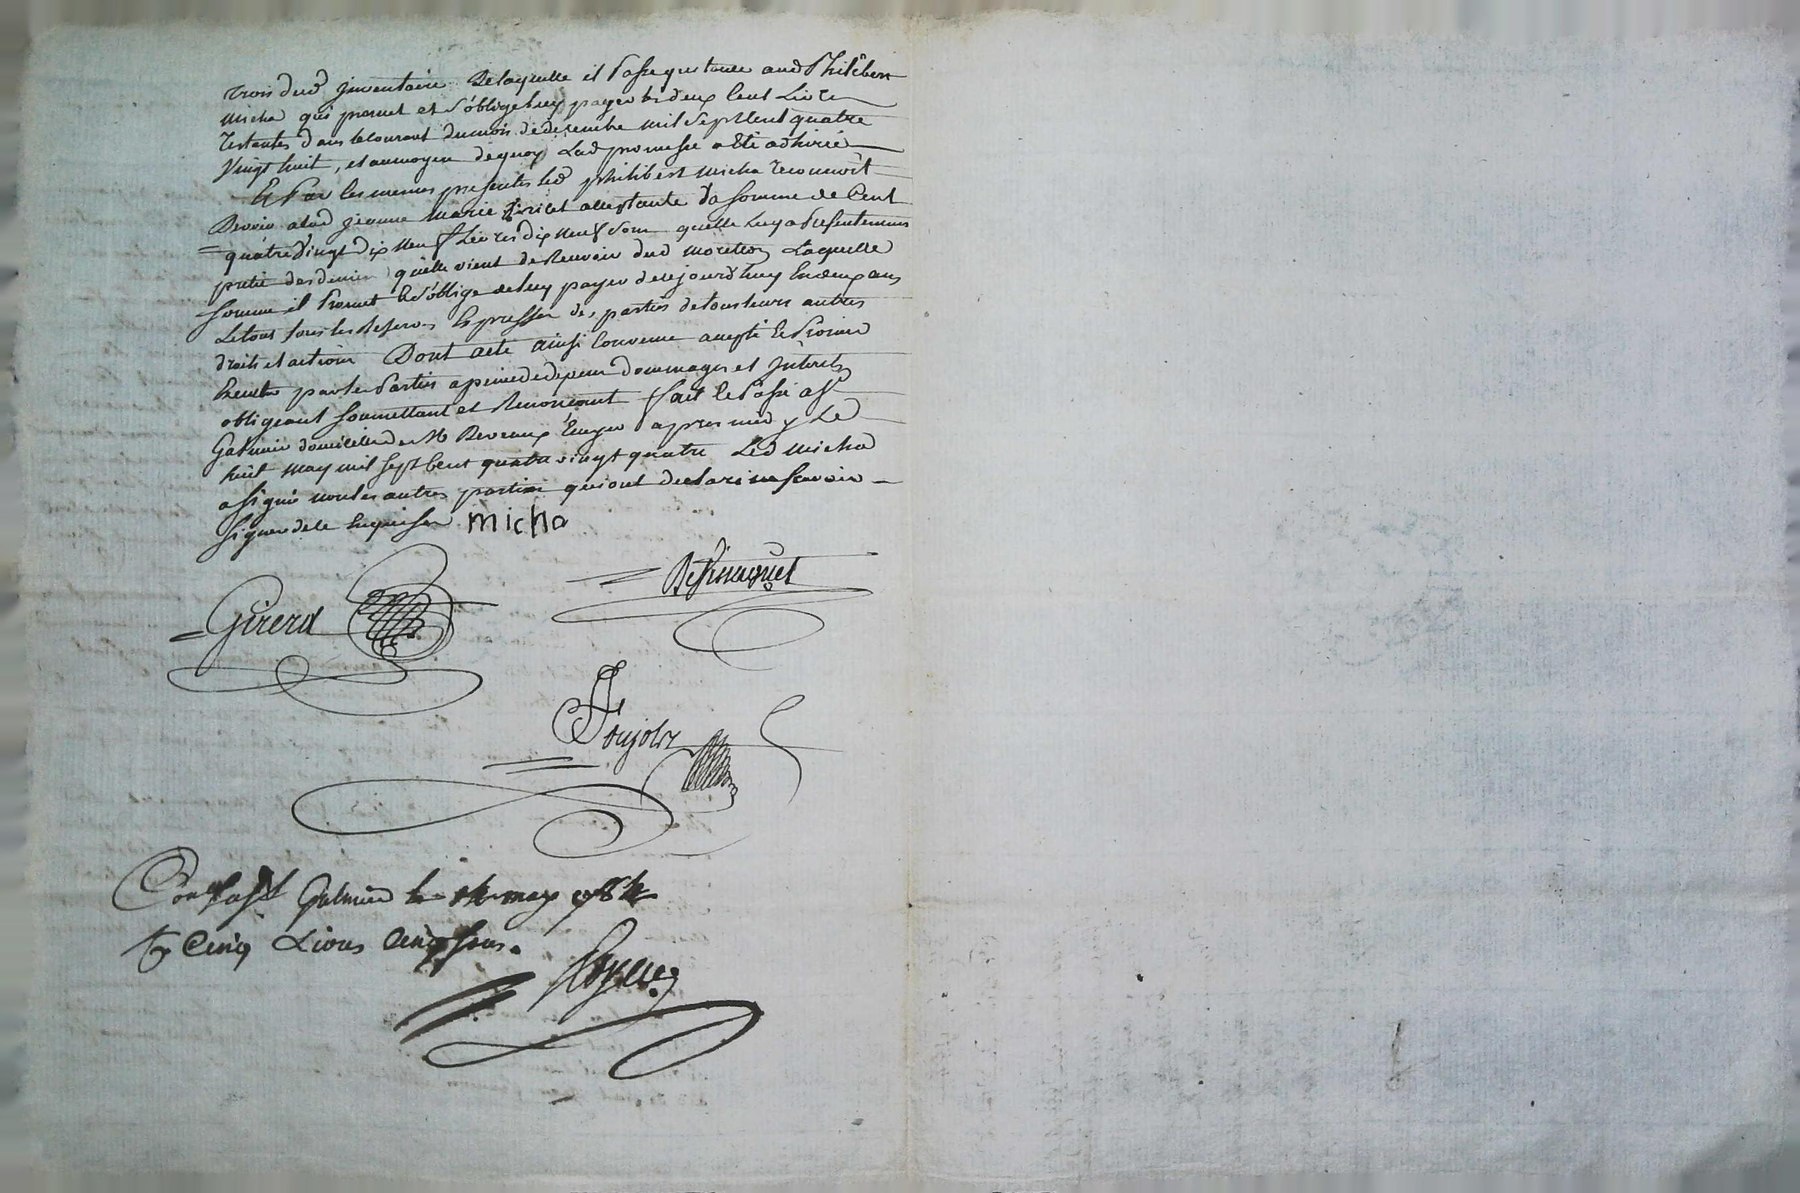 trois dud jnventaire De laquelle il Passe quittance aud Philibert
Micha qui promet et s'oblige luy payer les deux Cent Livres
restantes dans le courant du mois de desembre mil sept Cent quatre
Vingt huit, et au moyen de quoy Lad promesse a été adhirée
Et Par les memes presentes led philibert Micha reconnoit
Devoir alad jeanne Marie acceptante la somme de Cent
quatre Vingt dix Neuf Livres dix Neuf sous quelle Luy a Presentement
preté des denier quelle vient de Recevoir dud Laquelle
somme il Promet et s'oblige de luy payer de ce jourd'huy En deux ans
Le tous sous les Reserves Expresses des parties de tous leurs autres
droits et actions Dont acte ainsi Convenu accepté et Promis
par les Parties a peine de depens dommages et Jnterets
obligeant soumettant et Renoncant fait et Passé a St
Galmier domicille de Me apres midy Le
huit may mil sept Cent quatre vingt quatre Led Micha
a signé non les autres parties qui ont declaré ne scavoir
signer de ce Enquis micha
Girerd
Pujolz
Con a St Galmier le may 1784
Cinq Livres Cinq sous.